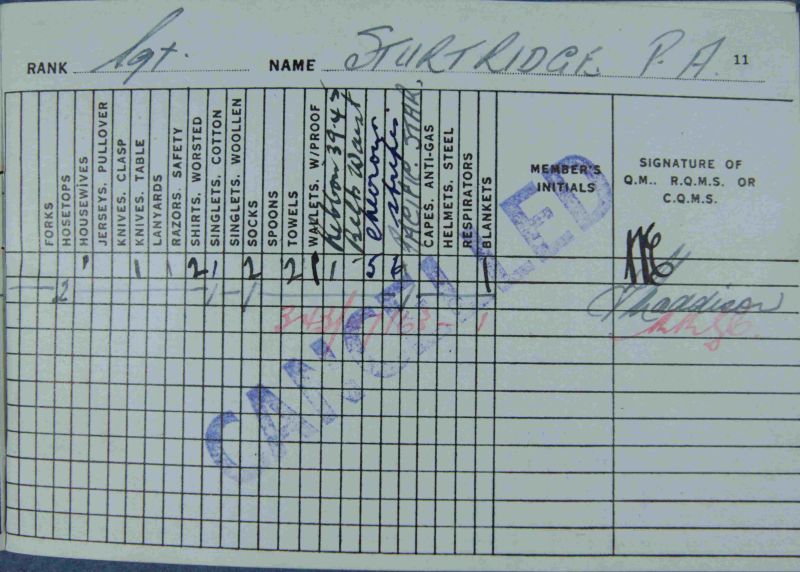 RANK Sgt. NAME STURTRIDGE P. A. 11
FORKS
HOSETOPS
HOUSEWIVES
JERSEYS, PULLOVER
KNIVES, CLASP
KNIVES, TABLE
LANYARDS
RAZORS, SAFETY
SHIRTS, WORSTED
SINGLETS, COTTON
SINGLETS, WOOLLEN
SOCKS
SPOONS
TOWELS
WALLETS, W/PROOF
Ribbon 39-45
Belt Waist
Chevrons
Stripes
PACIFIC STAR
CAPES, ANTI-GAS
HELMETS, STEEL
RESPIRATORS
BLANKETS
MEMBER'S INITIALS
SIGNATURE OF
Q.M., R.Q.M.S. OR
C.Q.M.S.
1 1 1 2 1 2 2 1 1 5 1
2 1 1 Maddison
343/1/163 - 1
CANCELLED